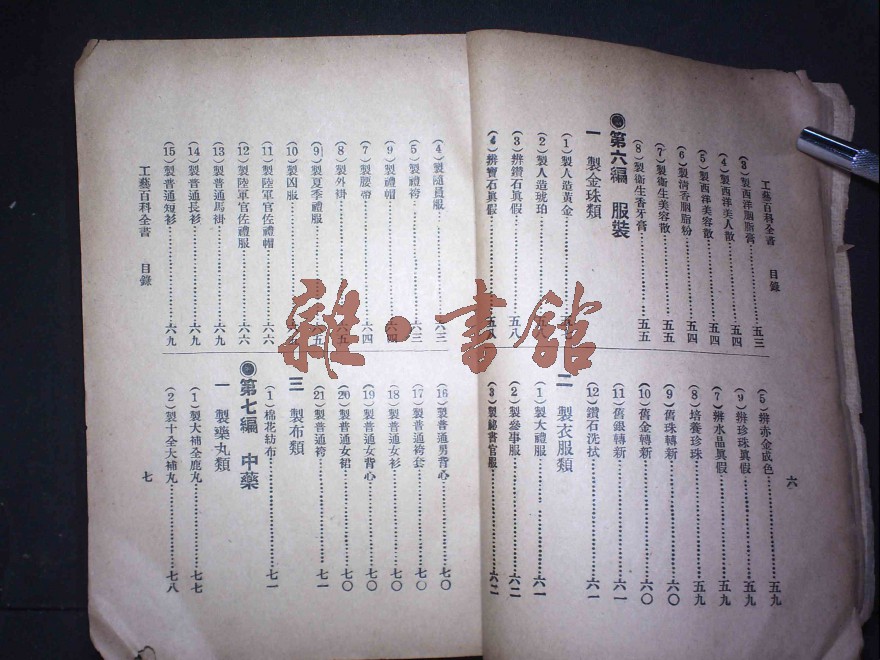 工藝百科全書　目錄
六
(3)製西洋胭脂膏……五三
(4)製西洋美人散……五四
(5)製西洋美容散……五四
(6)製清香胭脂粉……五四
(7)製衛生美容散……五五
(8)製衛生香牙膏……五五
◉第六編　服裝
一　製金珠類
(1)製人造黃金
(2)製人造琥珀
(3)辨鑽石眞假……五八
(4)辨寶石眞假……五八
(5)辨赤金成色……五九
(9)辨珍珠眞假……五九
(7)辨水晶眞假……五九
(8)培養珍珠……五九
(9)舊珠轉新……六〇
(10)舊金轉新……六〇
(11)舊銀轉新……六一
(12)鑽石洗拭……六一
二　製衣服類
(1)製大禮服……六一
(2)製參事服……六二
(3)製祕書官服……六二
(4)製隨員服……六三
(5)製禮袴……六三
(9)製禮帽……六四
(7)製腰帶……六四
(8)製外褂……六五
(9)製夏季禮服……六五
(10)製凶服
(11)製陸軍官佐禮帽……六六
(12)製陸軍官佐禮服……六六
(13)製普通馬褂……六九
(14)製普通長衫……六九
(15)製普通短衫……六九
(16)製普通男背心……七〇
(17)製普通袴套……七〇
(18)製普通女衫……七〇
(19)製普通女背心……七〇
(20)製普通女裙……七〇
(21)製普通袴……七一
三　製布類
(1)棉花紡布……七一
◉第七編　中藥
一　製藥丸類
(1)製大補全鹿丸……七七
(2)製十全大補丸……七八
工藝百科全書　目錄
七
雜·書館